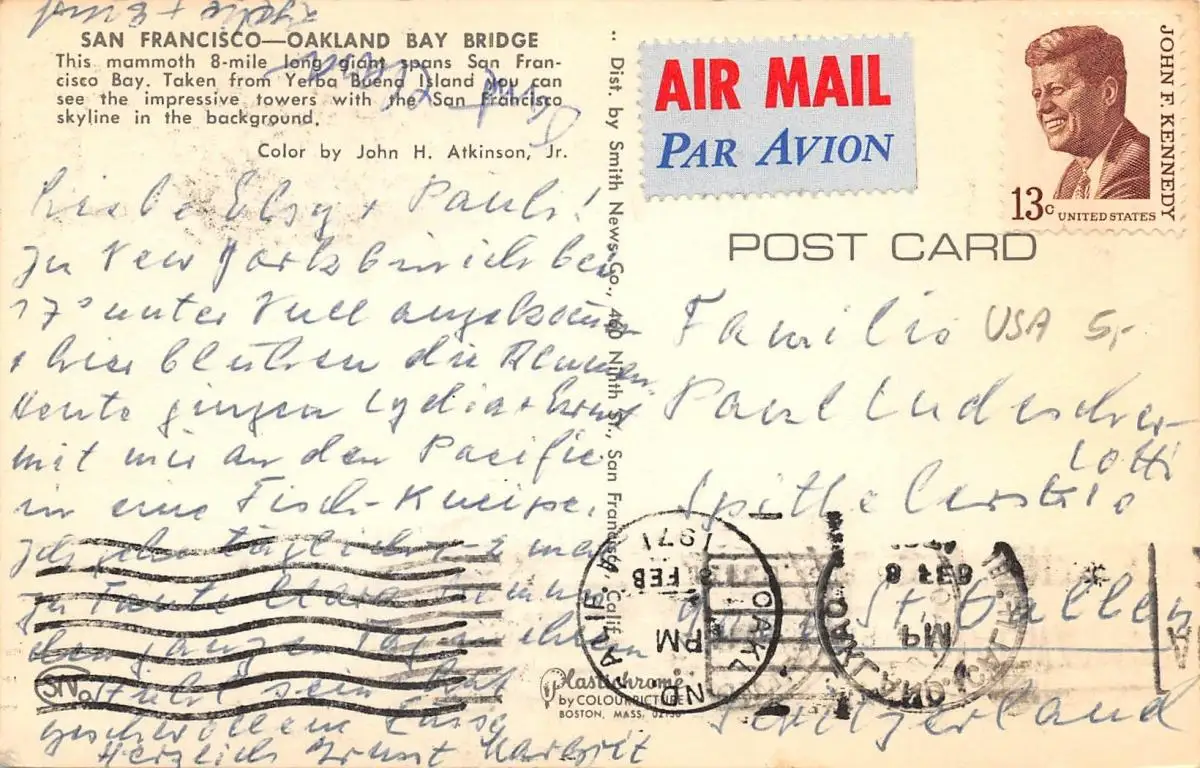 SAN FRANCISCO—OAKLAND BAY BRIDGE
This mammoth 8-mile long giant spans San Fran-
cisco Bay. Taken from Yerba Buena Island you can
see the impressive towers with the San Francisco
skyline in the background.
Color by John H. Atkinson, Jr.
Liebe Elsy + Pauls!
In New York bin ich bei
17° unter Null angekommen
+ hier blühen die Blumen.
Heute gingen Lydia + Ernst
mit mir an den Pacific
in eine Fisch-Kneipe.
Ich gehe täglich 1-2 mal
zu Tante Clara
den ganzen Tag
Stuhl sein
geschwollene Füsse
Herzlich grüsst Margrit
Dist. by Smith News Co., 460 Ninth St., San Francisco, Calif.
Plastichrome
by COLOURPICTURE
BOSTON, MASS. 02130
AIR MAIL
PAR AVION
JOHN F. KENNEDY
13c UNITED STATES
POST CARD
USA 5,-
Familie
Paul Ludescher-
Lotti
St. Gallen
Switzerland
OAKLAND, CALIF.
PM
FEB
1971